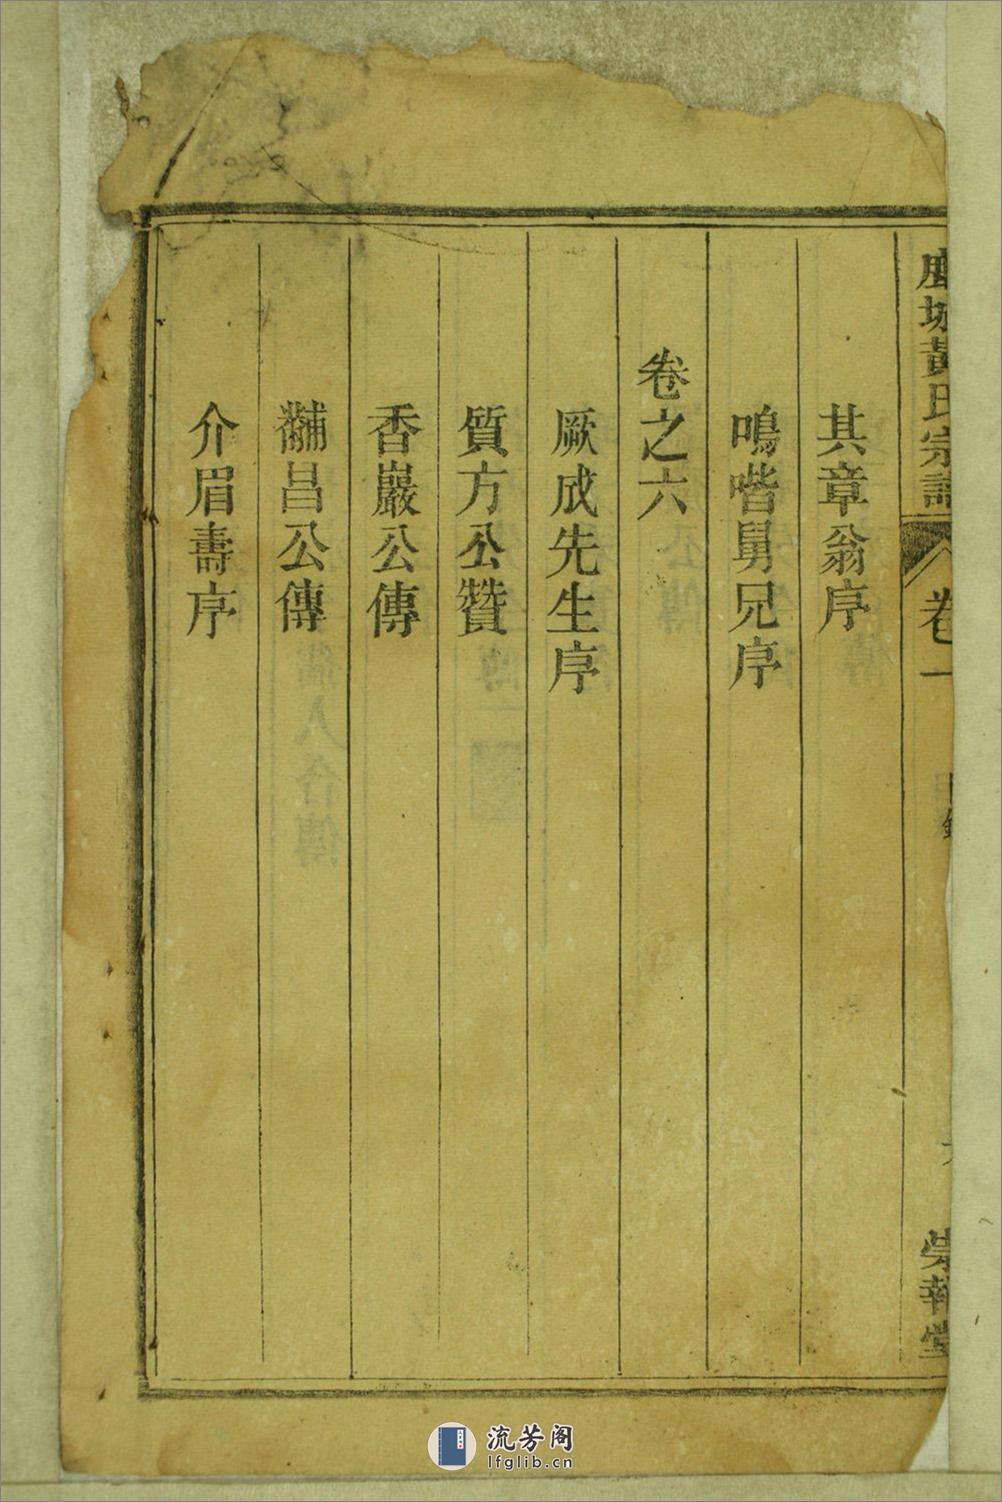 城黃氏宗譜
卷一
目錄
崇報堂
其章翁序
鳴喈舅兄序
卷之六
厥成先生序
質方公贊
香巖公傳
黼昌公傳
介眉壽序
流芳阁
lfglib.cn